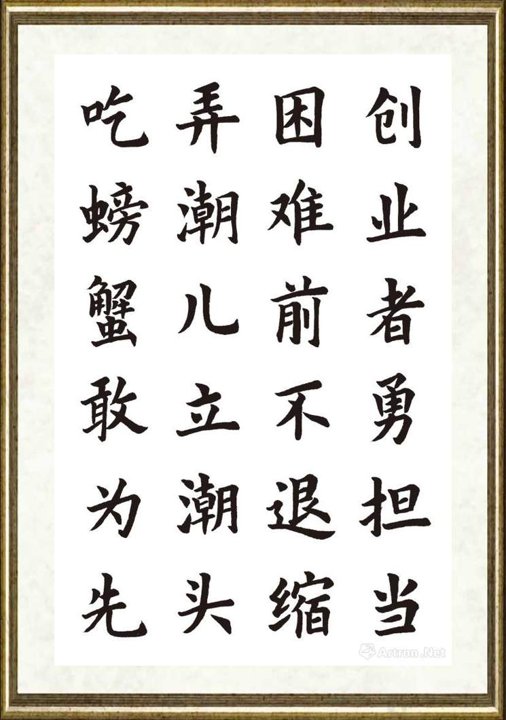 创业者勇担当
困难前不退缩
弄潮儿立潮头
吃螃蟹敢为先
Artron.Net